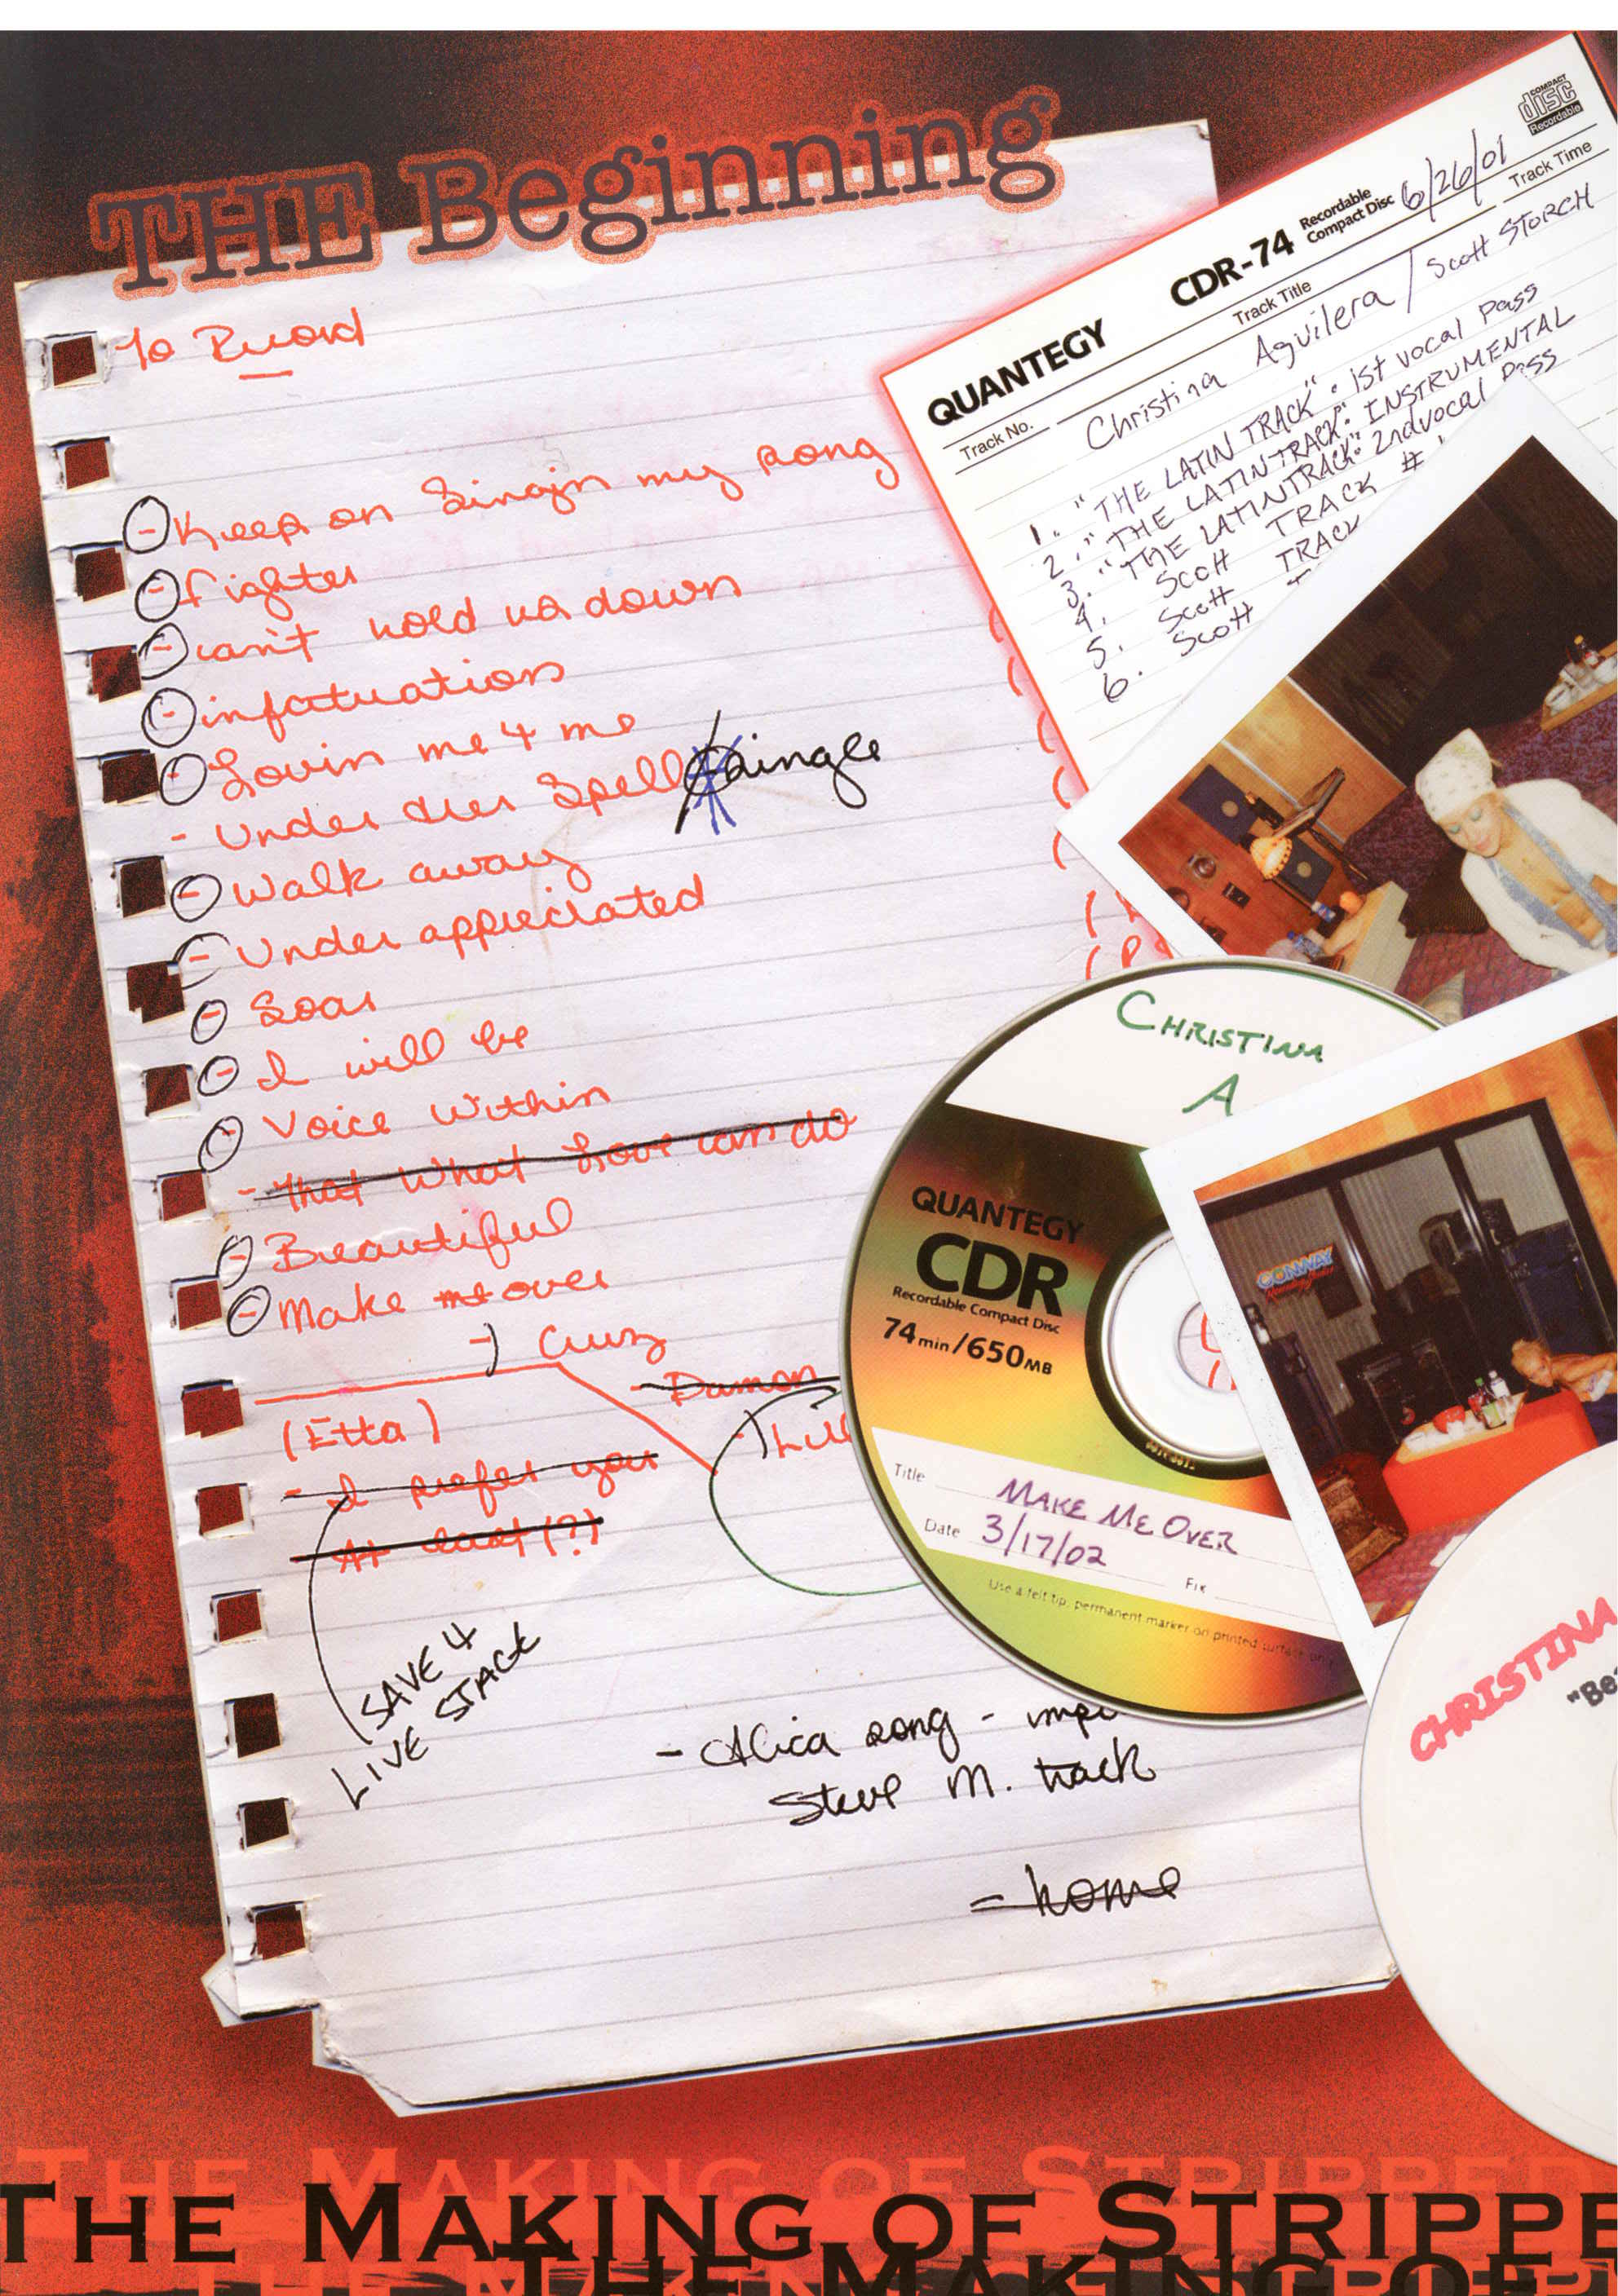 THE Beginning
To Record
- Keep on Singin my song
- fighter
- can't hold us down
- infatuation
- Lovin me 4 me
- Under der Spell * single
- Walk away
- Under appreciated
- Soar
- I will be
- Voice Within
- That What Love can do
- Beautiful
- Make me over
-) Cruz
- Damon
(Etta)
- I prefer you
- At last (?)
SAVE 4
LIVE STAGE
- Alica song -
Steve M. track
- home
COMPACT
disc
Recordable
QUANTEGY CDR-74 Recordable Compact Disc 6/26/01
Track No. Track Title Track Time
Christina Aguilera / Scott STORCH
1. "THE LATIN TRACK" • 1st vocal Pass
2. "THE LATIN TRACK" • INSTRUMENTAL
3. "THE LATIN TRACK" • 2nd vocal Pass
4. Scott TRACK #
5. Scott TRACK
6. Scott
CHRISTINA
A
QUANTEGY
CDR
Recordable Compact Disc
74min/650MB
Title MAKE ME OVER
Date 3/17/02
Use a felt tip, permanent marker on printed surface only
CONWAY
CHRISTINA
"Be
THE MAKING OF STRIPPED
THE MAKING OF STRIPPE
THE MAKING OF
THE MAKING OF STRIPPED